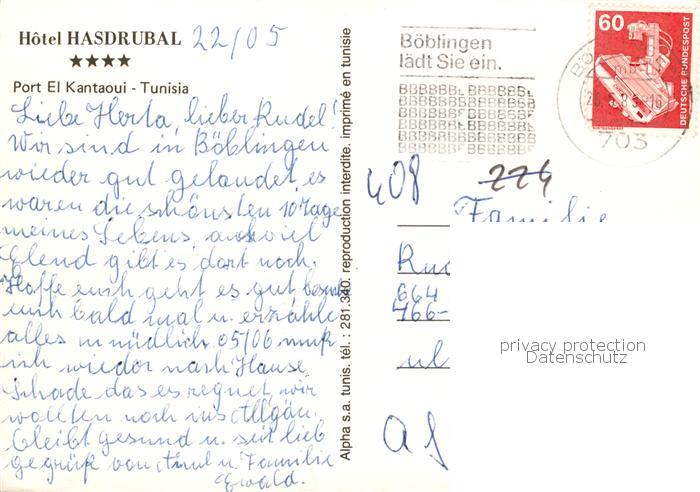 Hôtel HASDRUBAL
★★★★
Port El Kantaoui - Tunisia
22/05
Liebe Herta, lieber Rudel!
Wir sind in Böblingen
wieder gut gelandet es
waren die schönsten 10 Tage
meines Lebens, a viel
Elend gibt es dort noch.
Hoffe euch geht es gut
euch bald mal u. erzähle
alles mündlich 05/06 muß
ich wieder nach Hause
schade das es regnet, wir
wollten noch ins Allgäu.
bleibt gesund u. seit lieb
gegrüß von u Familie
Ewald.
Alpha s.a. tunis. tél. : 281.340. reproduction interdite. imprimé en tunisie
Böblingen
lädt Sie ein.
60
DEUTSCHE BUNDESPOST
703
408
224
Familie
Ru
664
766-
ul
privacy protection
Datenschutz